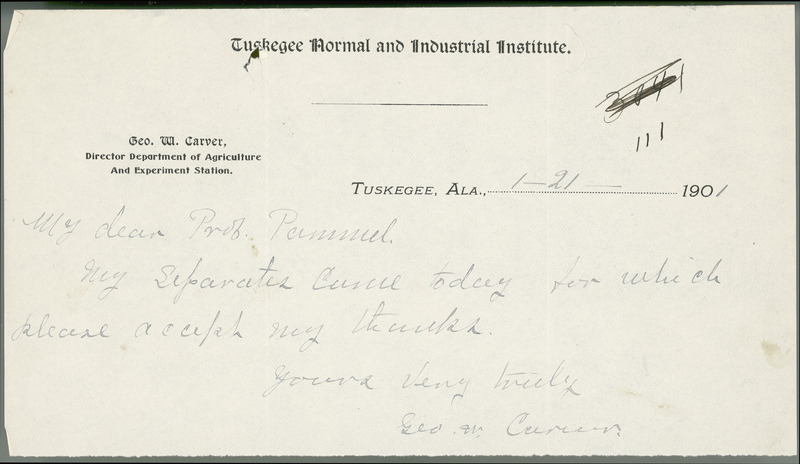 Tuskegee Normal and Industrial Institute.
111
Geo. W. Carver,
Director Department of Agriculture
And Experiment Station.
Tuskegee, Ala., 1-21- 1901
My dear Prof. Pammel.
My separates came today for which
please accept my thanks.
Yours Very truly
Geo. W. Carver.